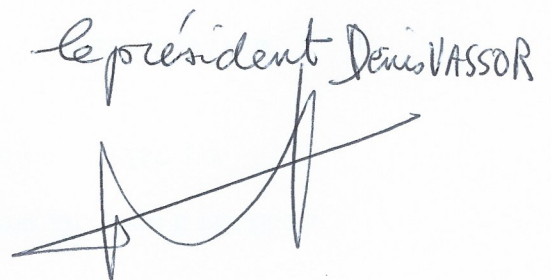 le président Denis VASSOR